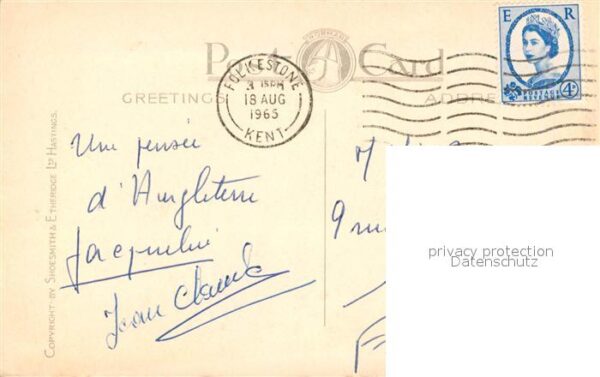 NORMAN
Post Card
E R
POSTAGE
REVENUE
4D
FOLKESTONE
3 15PM
18 AUG
1965
KENT
GREETINGS
ADDRE
COPYRIGHT BY SHOESMITH & ETHERIDGE LTD HASTINGS.
Une pensée
d'Angleterre
Jacqueline
Jean Claude
9 rue
privacy protection
Datenschutz